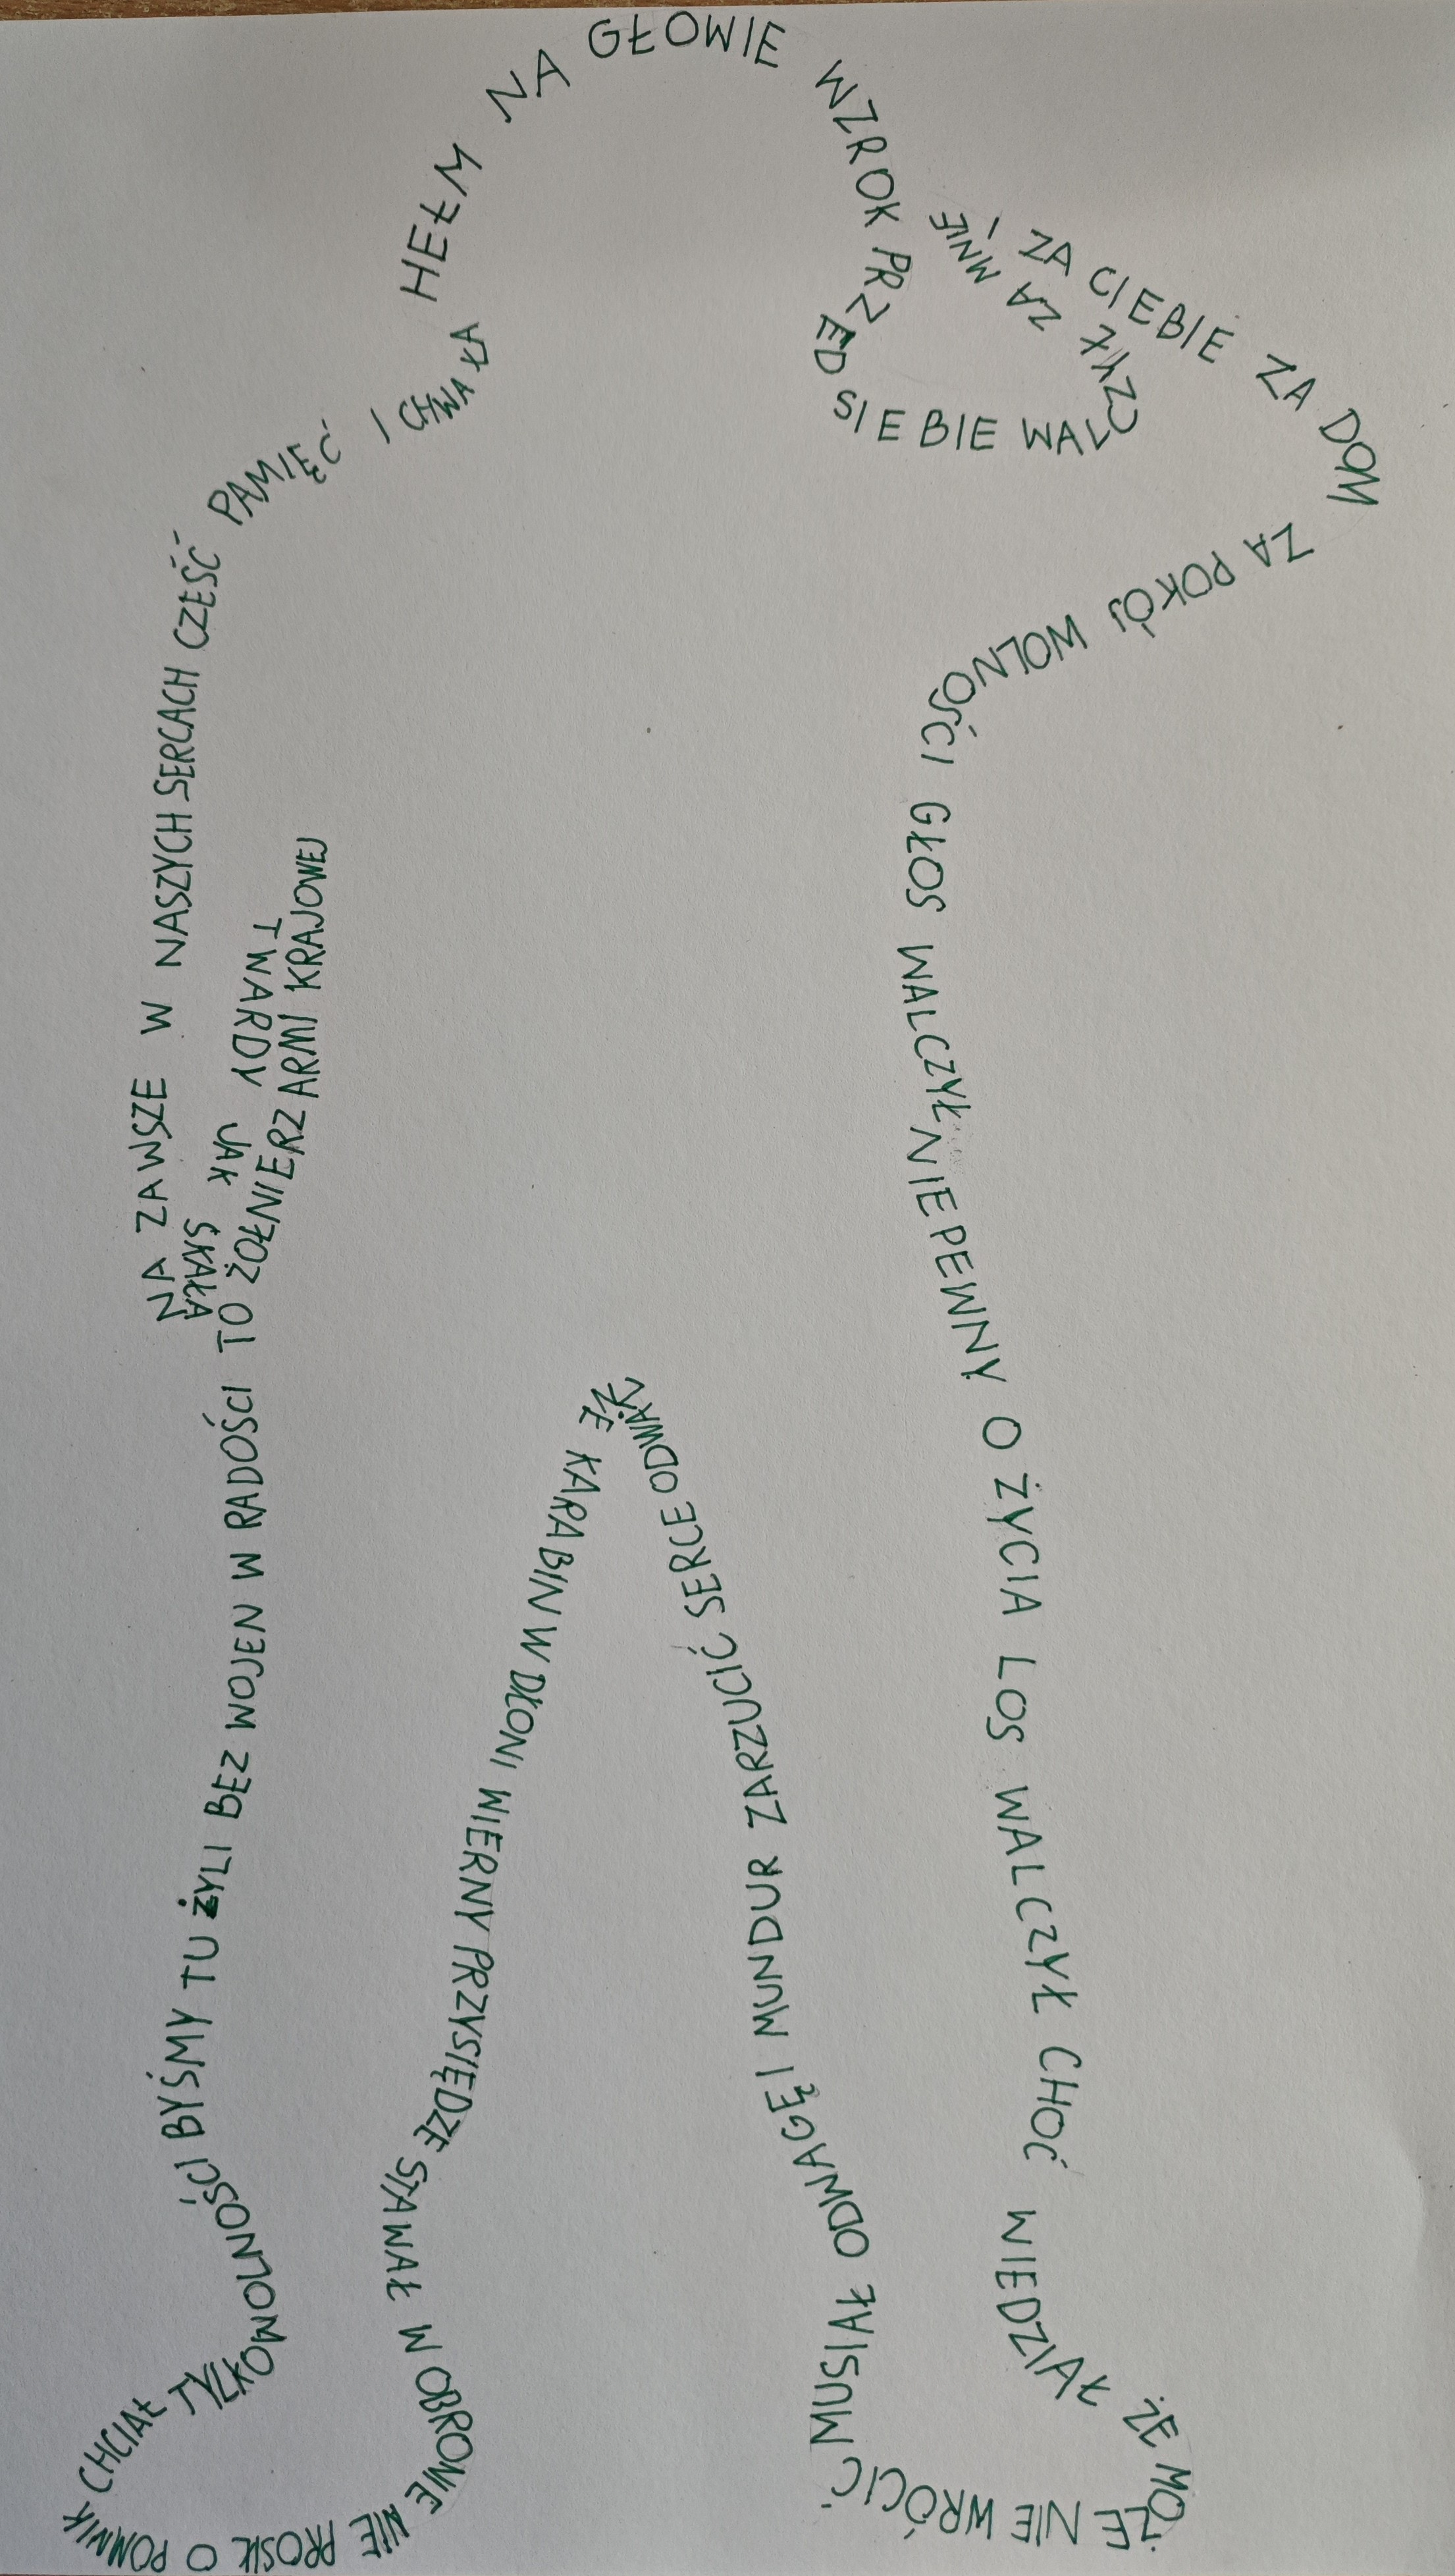 HEŁM NA GŁOWIE WZROK PRZED SIEBIE WALCZYŁ ZA MNIE I ZA CIEBIE ZA DOM ZA POKÓJ WOLNOŚCI GŁOS WALCZYŁ NIEPEWNY O ŻYCIA LOS WALCZYŁ CHOĆ WIEDZIAŁ ŻE MOŻE NIE WRÓCIĆ MUSIAŁ ODWAGĘ I MUNDUR ZARZUCIĆ SERCE ODWAŻNE KARABIN W DŁONI WIERNY PRZYSIĘDZE STAWAŁ W OBRONIE NIE PROSIŁ O POMNIK CHCIAŁ TYLKO WOLNOŚCI BYŚMY TU ŻYLI BEZ WOJEN W RADOŚCI TO ŻOŁNIERZ ARMI KRAJOWEJ
TWARDY JAK SKAŁA
NA ZAWSZE W NASZYCH SERCACH CZEŚĆ PAMIĘĆ I CHWAŁA